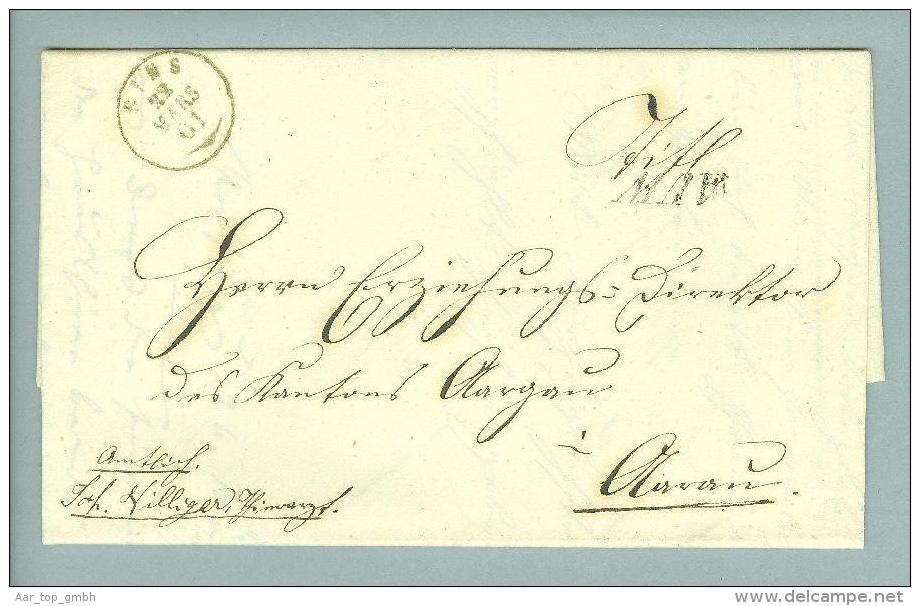 SINS
22
MARS
61
Titl
Herrn Erziehungs-Direktor
des Kantons Aargau
i
Aarau.
Amtlich.
Joh. Villiger, Thierarzt.
Aar_top_gmbh
www.delcampe.net